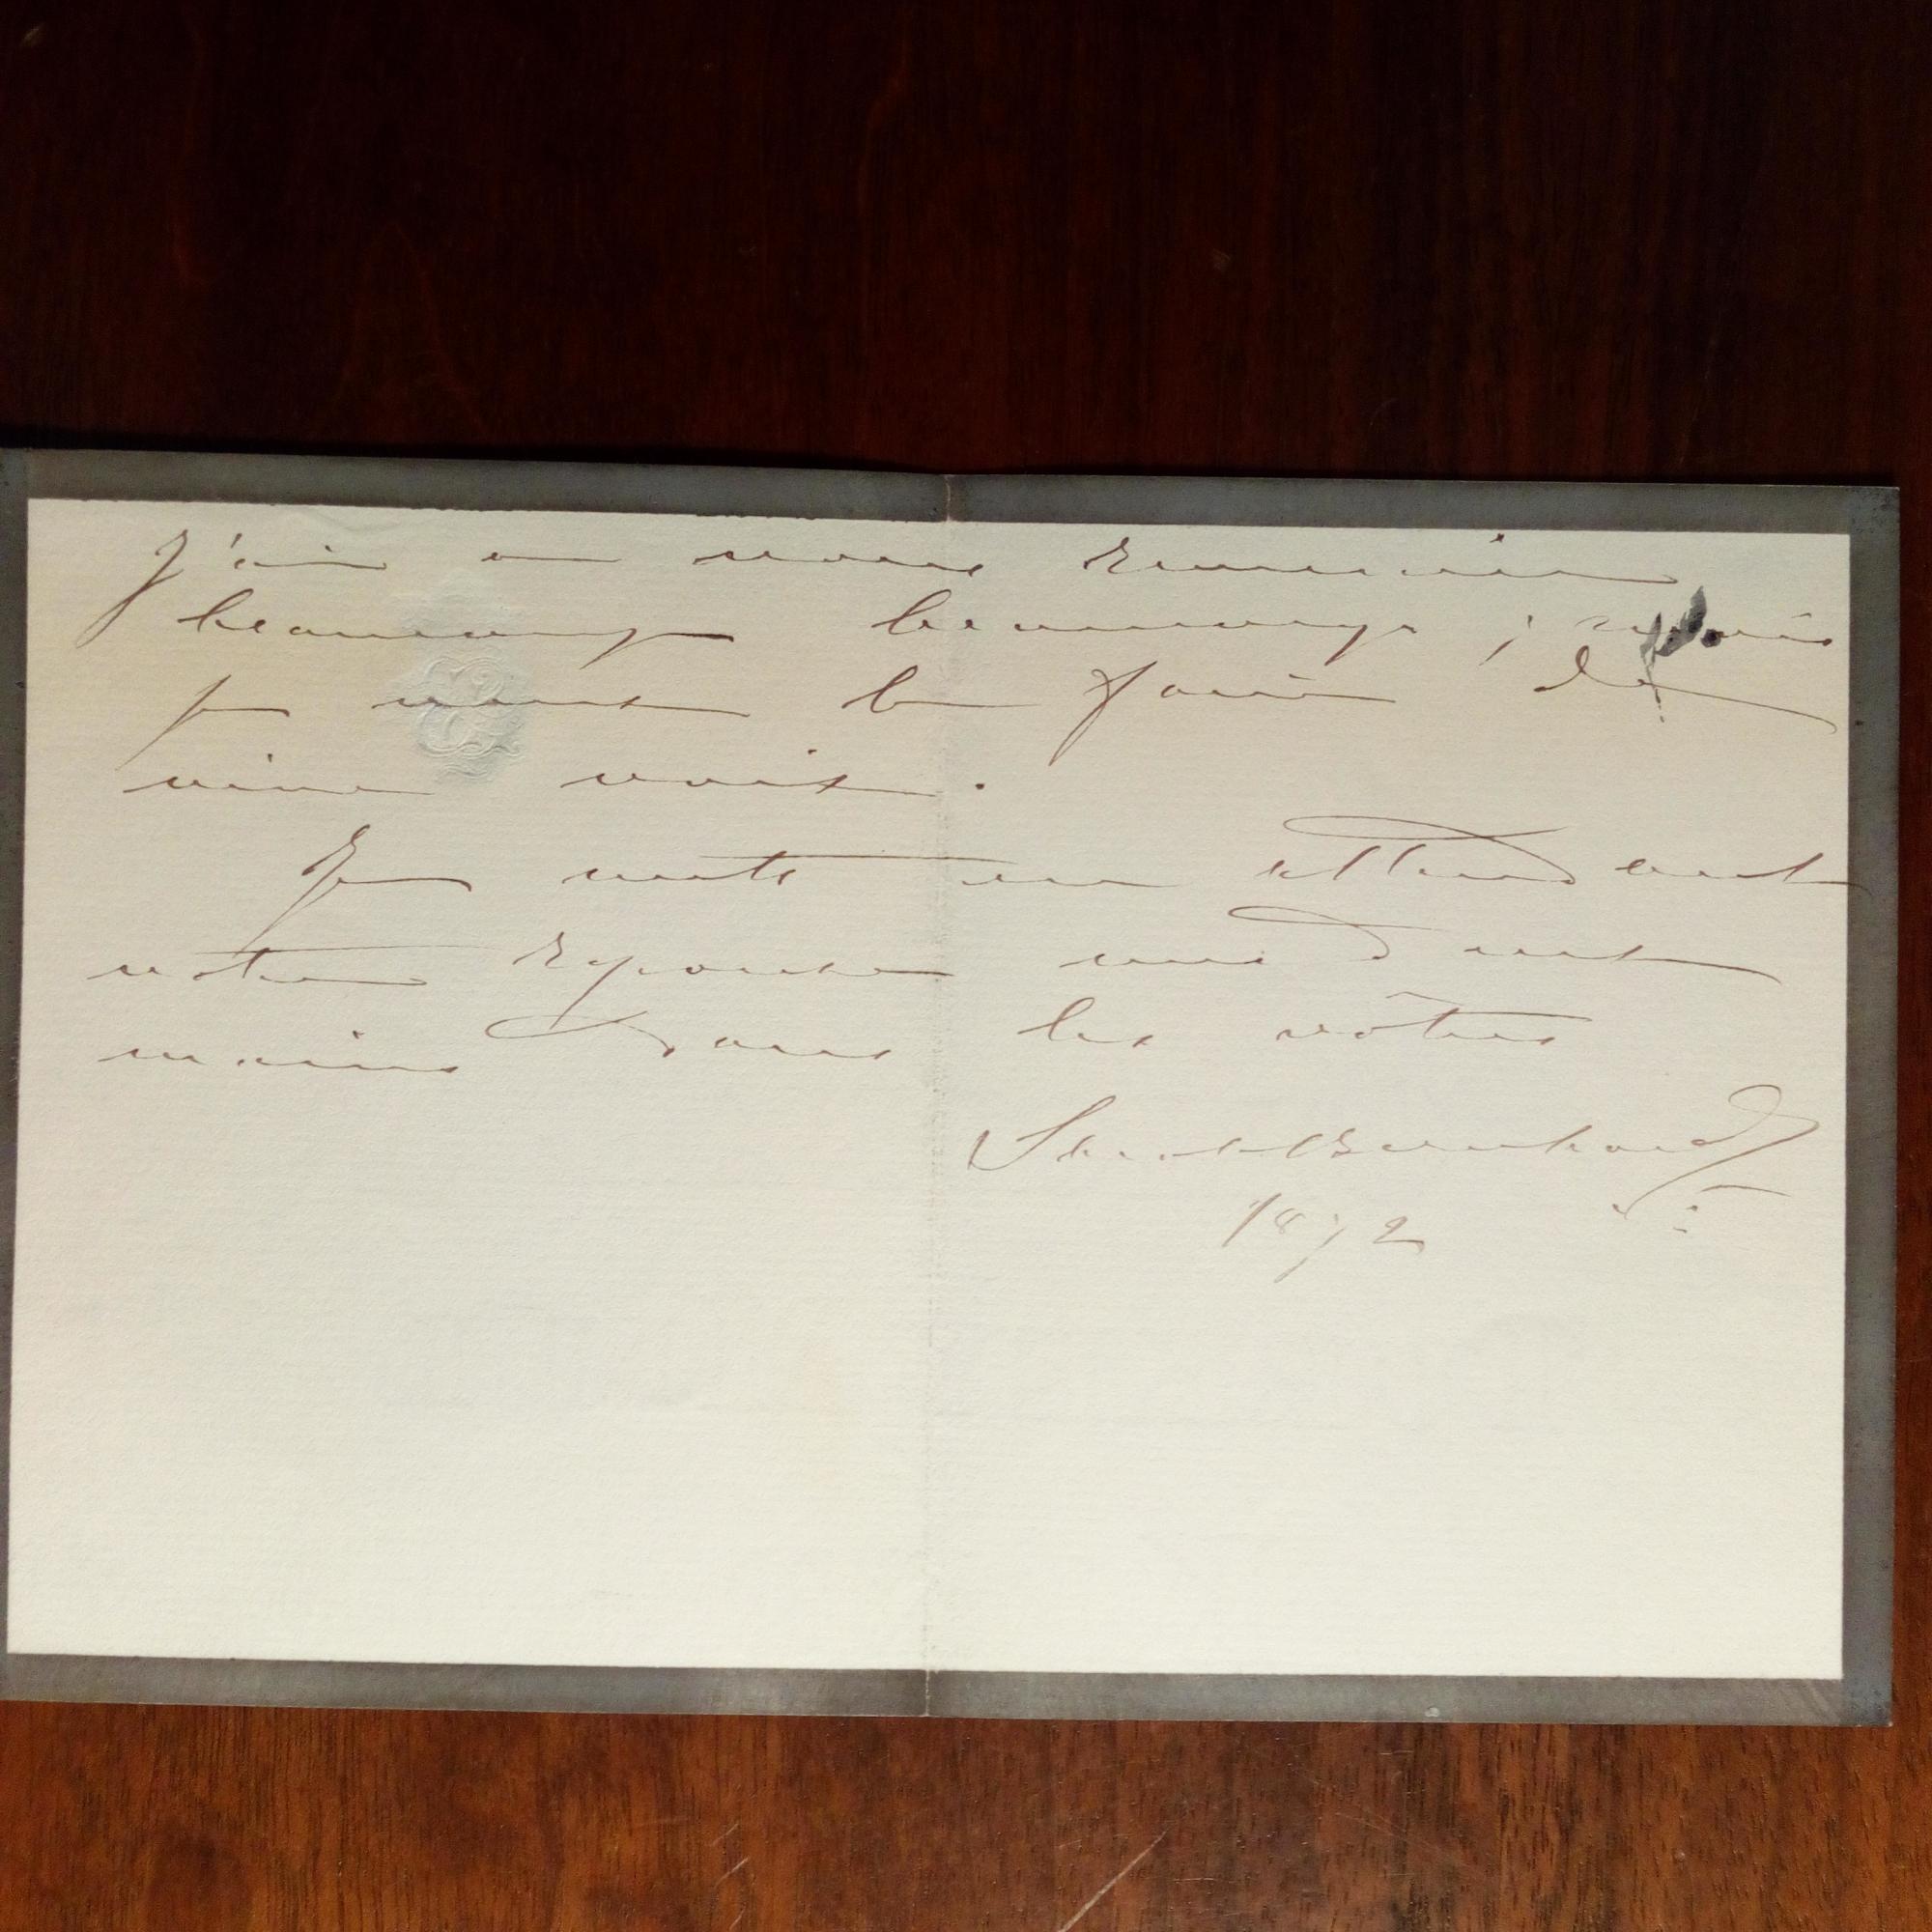 J'ai a vous remercier
beaucoup beaucoup ; mais
je veux le faire de
vive voix.
Je mets en attendant
votre réponse mes deux
mains dans les vôtres
Sarah Bernhardt
1872